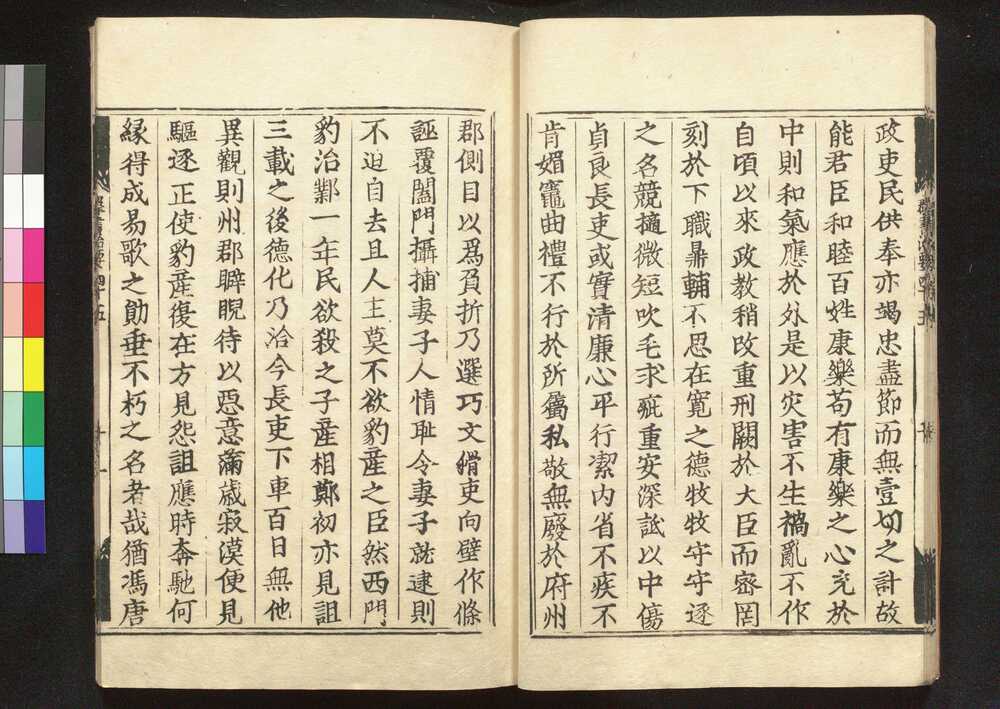 政吏民供奉亦竭忠盡節而無壹切之計故
能君臣和睦百姓康樂苟有康樂之心充於
中則和氣應於外是以灾害不生禍亂不作
自頃以來政教稍改重刑闕於大臣而密罔
刻於下職鼎輔不思在寬之德牧牧守守逐
之名競擿微短吹毛求疵重安深詆以中傷
貞良長吏或實清廉心平行潔内省不疾不
肯媚竈曲禮不行於所屬私敬無廢於府州
郡側目以爲負折乃選巧文猾吏向壁作條
誣覆闔門攝捕妻子人情耻令妻子就逮則
不迫自去且人主莫不欲豹産之臣然西門
豹治鄴一年民欲殺之子產相鄭初亦見詛
三載之後德化乃洽今長吏下車百日無他
異觀則州郡睥睨待以惡意滿歲寂漠便見
驅逐正使豹產復在方見怨詛應時奔馳何
緣得成易歌之勛垂不朽之名者哉猶馮唐
群書治要 四十五